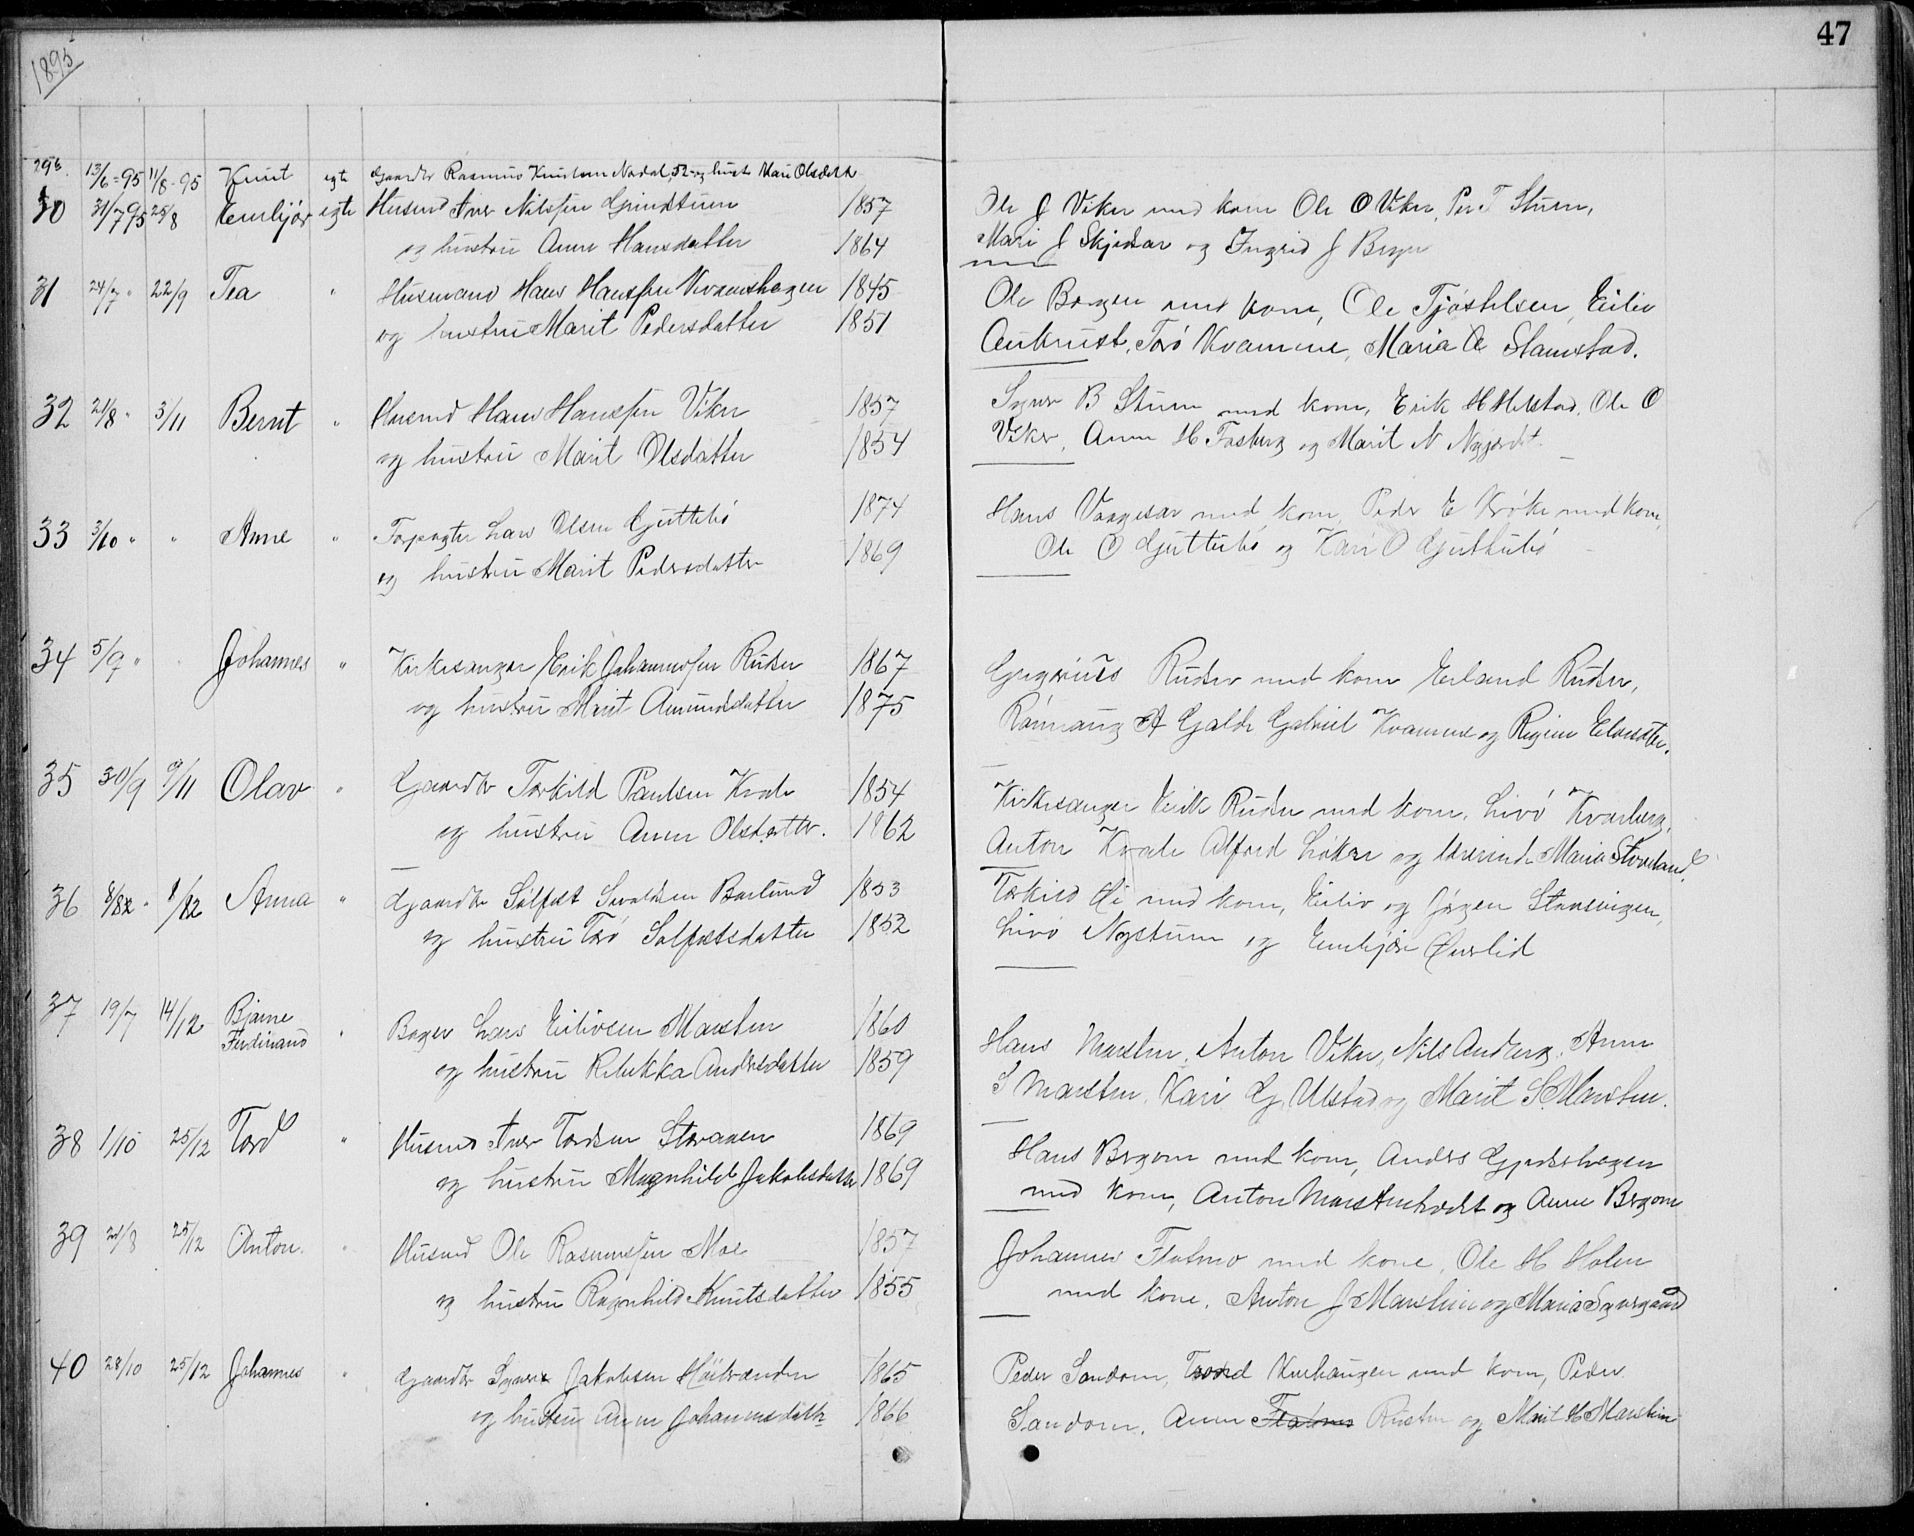 1895
47
29b 13/6-95 11/8-95 Knut egte Gaardbr Rasmus Knutsen Nordal, 52 og hust Mari Olsdttr
30 31/7 95 25/8 Embjør egte Husmd Iver Nilssen Grindstuen 1857
og hustru Anne Hansdatter 1864
Ole J Viker med kone Ole O Viker, Per T Stuen,
Mari J Skjedsar og Ingrid J
31 24/7 " 22/9 Tea " Husmand Hans Hanssen Kvamshagen 1845
og hustru Marit Pedersdatter 1851
Ole Bergen med kone, Ole Tjøstelsen, Eiliv
Aukrust, Torø Kvamme, Maria A Slamstad.
32 21/8 " 3/11 Bernt " Husmd Hans Hanssen Viker 1857
og hustru Marit Olsdatter 1854
Syver B Stuen med kone, Erik H Helstad, Ole O
Viker, Anne H Fosberg og Marit N Nygjerdet
33 3/10 " " Anne " Forpagter Lars Olsen Guttebø 1874
og hustru Marit Pedersdatter 1869
Hans Vaagesar med kone, Peder E Krøke med kone,
Ole O Guttubø og Kari O Guttubø
34 5/9 " " Johannes " Kirkesanger Erik Johannessen Rusten 1867
og hustru Marit Amundsdatter 1875
Gregorius Rusten med kone Erland Rusten,
Rønnaug A Galde Gabriel Kvamme og Regine
35 30/9 9/11 Olav " Gaardbr Torkild Paulsen Kvale 1854
og hustru Anne Olsdatter. 1862
Kirkesanger Erik Rusten med kone, Livø Kvarberg,
Anton Kvale Alfred Løkar og lærerinde Maria Storeland
36 8/82 " 8/82 Anna " Gaardbr Sølfest Sivaldsen Barlund 1853
og hustru Torø Solfestsdatter 1852
Torkild Li med kone, Eiliv og Jørgen Stavsengen,
Livø Nystuen og Embjør Øverlid
37 19/7 14/12 Bjarne " Bager Lars Eilivsen Marstein 1860
Ferdinand og hustru Rebekka Andersdatter 1859
Hans Marstein, Anton Viker, Nils Andberg, Anne
S Marstein, Kari G. Ulstad og Marit S. Marstein.
38 1/10 25/12 Tord " Husmd Iver Tordsen Storaaen 1869
og hustru Magnhild Jakobsdatter 1869
Hans Brgom med kone, Anders Gjerdeshagen
med kone, Anton Marsteinhødet og Anne Brgom
39 21/8 25/12 Anton " Husmd Ole Rasmussen Moe 1857
og hustru Ragnhild Knutsdatter 1855
Johannes Flatmo med kone, Ole H Holen
med kone, Anton J Marstein og Maria Sygard
40 28/10 25/12 Johannes " Gaardbr Syver Jakobsen Høibrænden 1865
og hustru Anne Johannesdatter 1866
Peder Sandom, Trond Kruhaugen med kone, Peder
Sandom, Anne Flatmo Rusten og Marit H Marstein